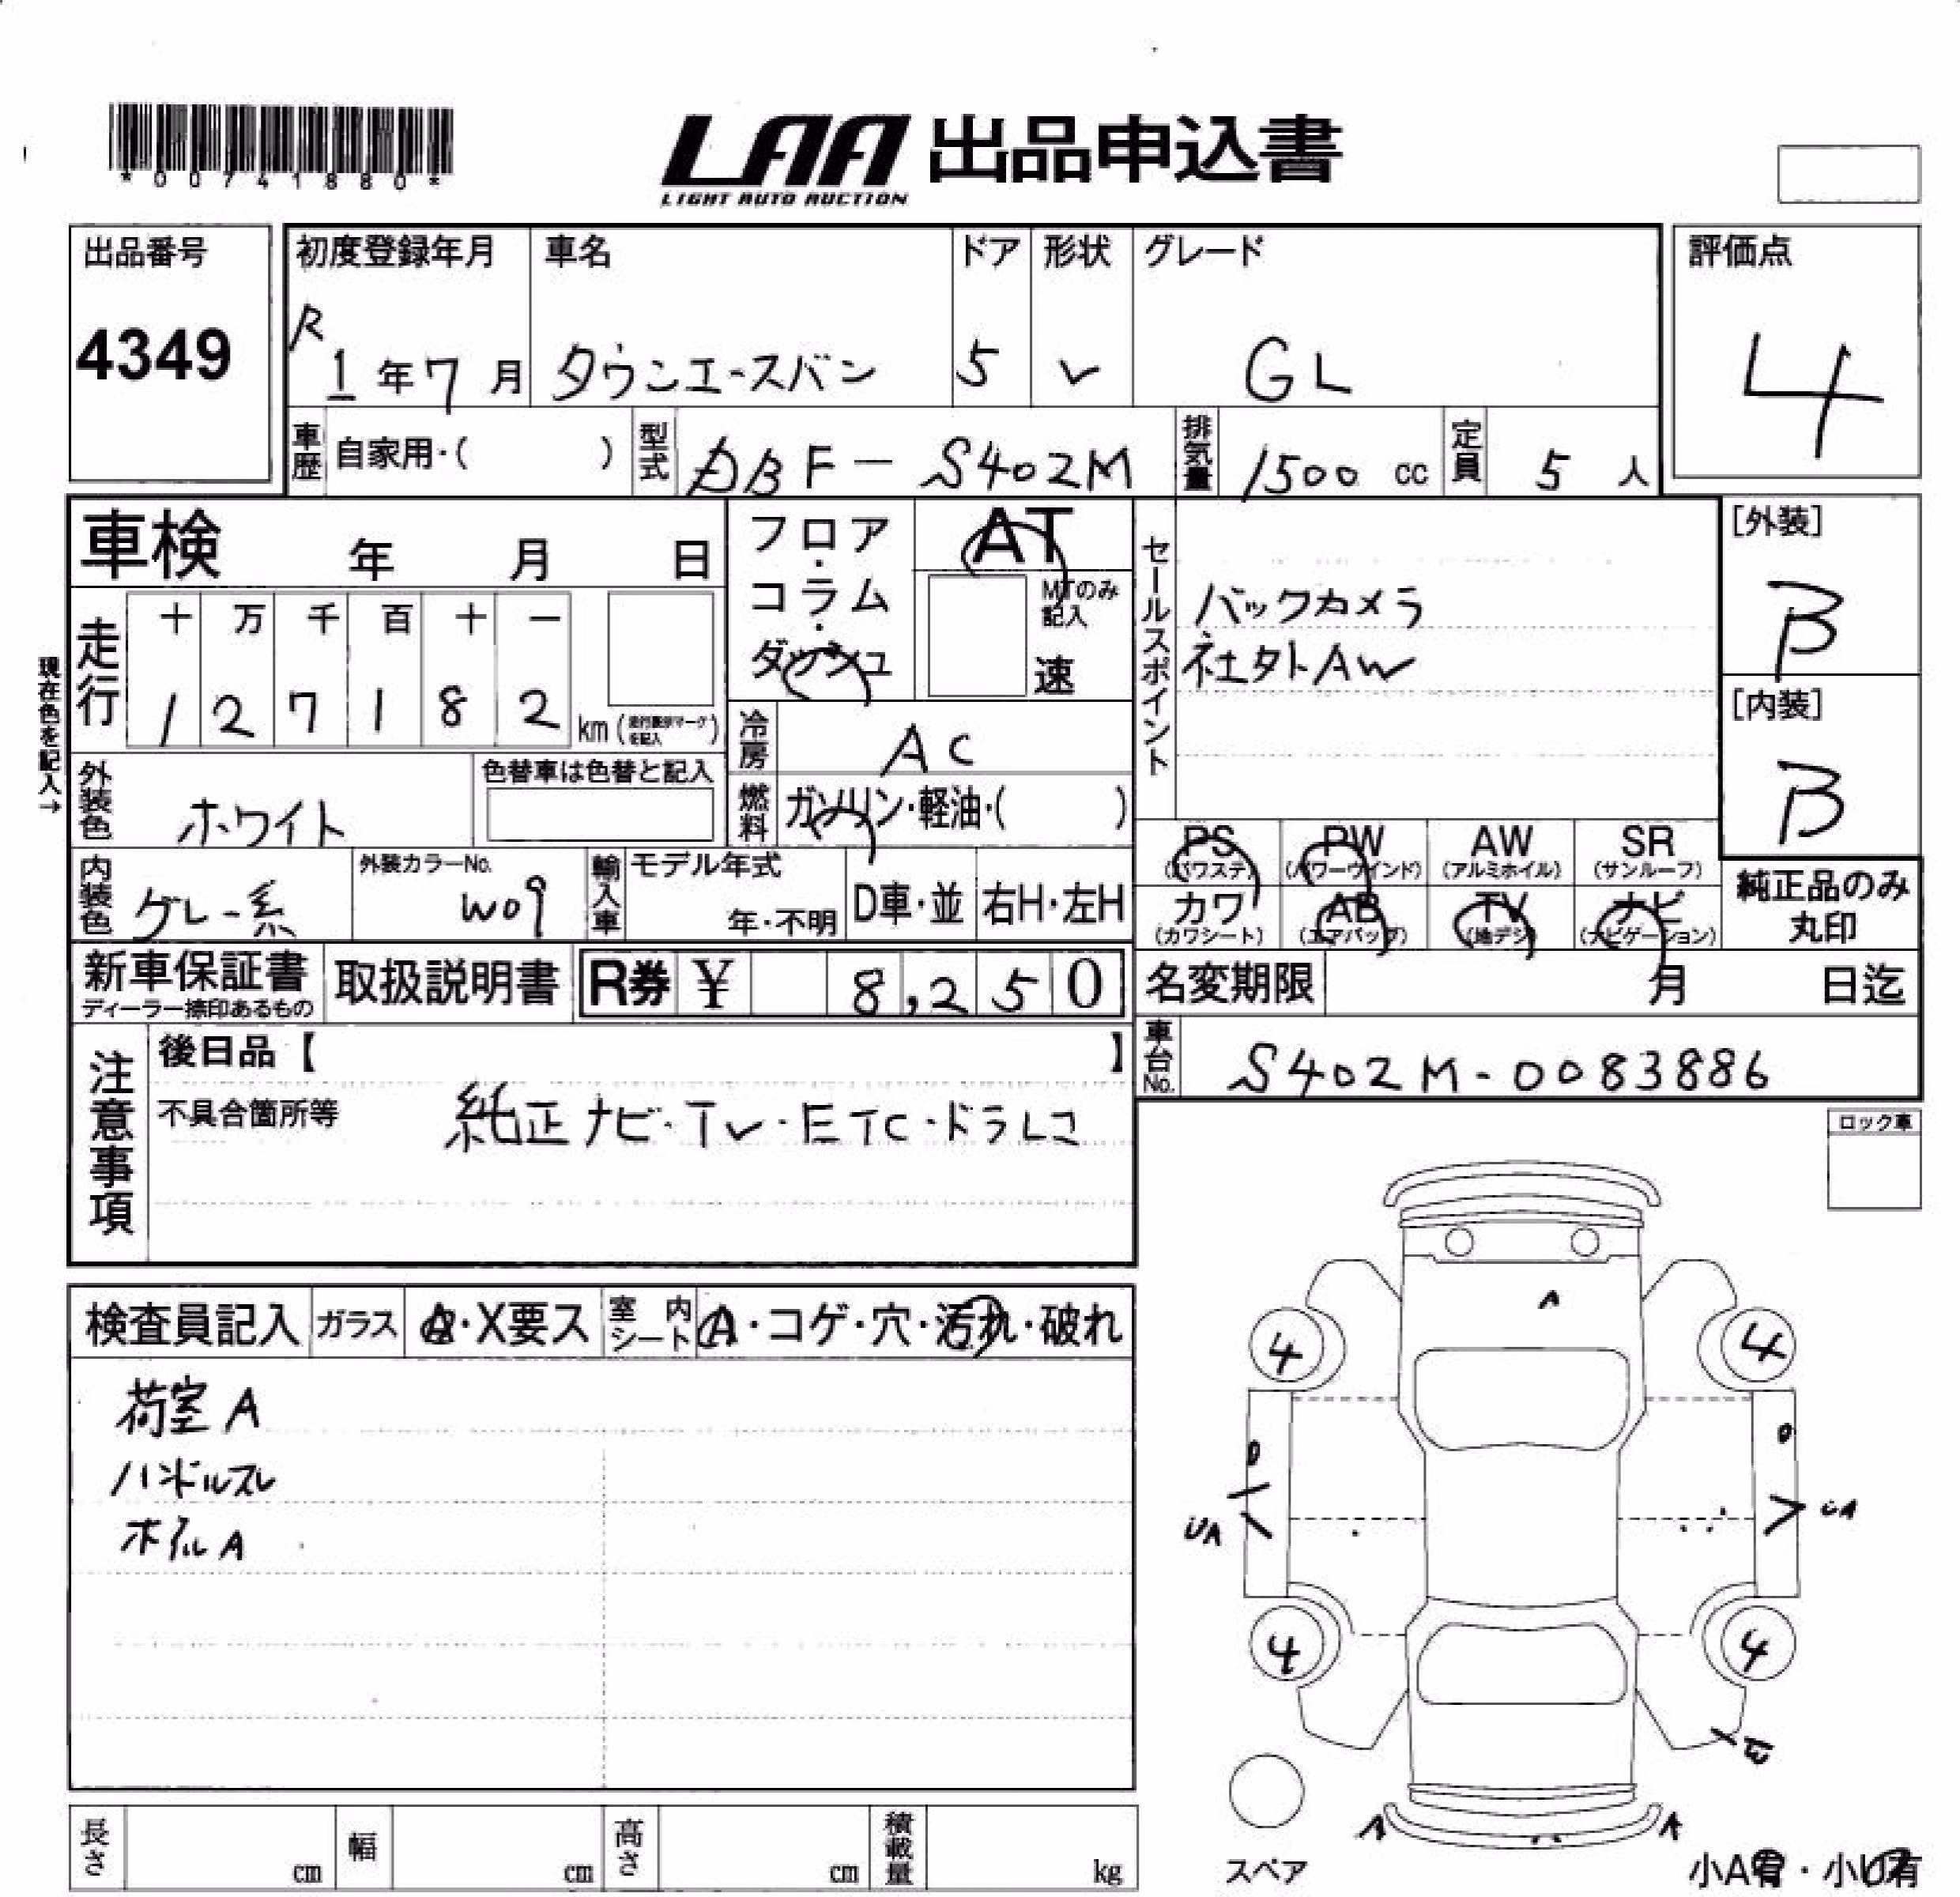 *00741880*
LAA 出品申込書
LIGHT AUTO AUCTION
出品番号
4349
初度登録年月
R
1年7月
車名
タウンエースバン
ドア
5
形状
V
グレード
GL
評価点
4
車歴
自家用・( )
型式
DBF-S402M
排気量
1500 cc
定員
5 人
車検 年 月 日
現在色を記入→
走行
十 万 千 百 十 一
1 2 7 1 8 2 km (走行表示マークを記入)
フロア・コラム・ダッシュ
AT
MTのみ記入
速
セールスポイント
バックカメラ
社外AW
[外装]
B
[内装]
B
冷房
AC
燃料
ガソリン・軽油・( )
外装色
ホワイト
色替車は色替と記入
内装色
グレー系
外装カラーNo.
W09
輸入車
モデル年式
年・不明
D車・並
右H・左H
PS (パワステ)
PW (パワーウインド)
AW (アルミホイル)
SR (サンルーフ)
カワ (カワシート)
AB (エアバッグ)
TV (地デジ)
ナビ (ナビゲーション)
純正品のみ
丸印
新車保証書
ディーラー捺印あるもの
取扱説明書
R券 ¥ 8,250
名変期限 月 日迄
車台No.
S402M-0083886
注意事項
後日品【 】
不具合箇所等
純正ナビ・TV・ETC・ドラレコ
ロック車
検査員記入
ガラス
A・X要ス
室内シート
A・コゲ・穴・汚れ・破れ
荷室A
ハンドルスレ
ホイルA
A
4
4
UA
UA
4
4
A
A
スペア
小A有・小U有
長さ cm
幅 cm
高さ cm
積載量 kg